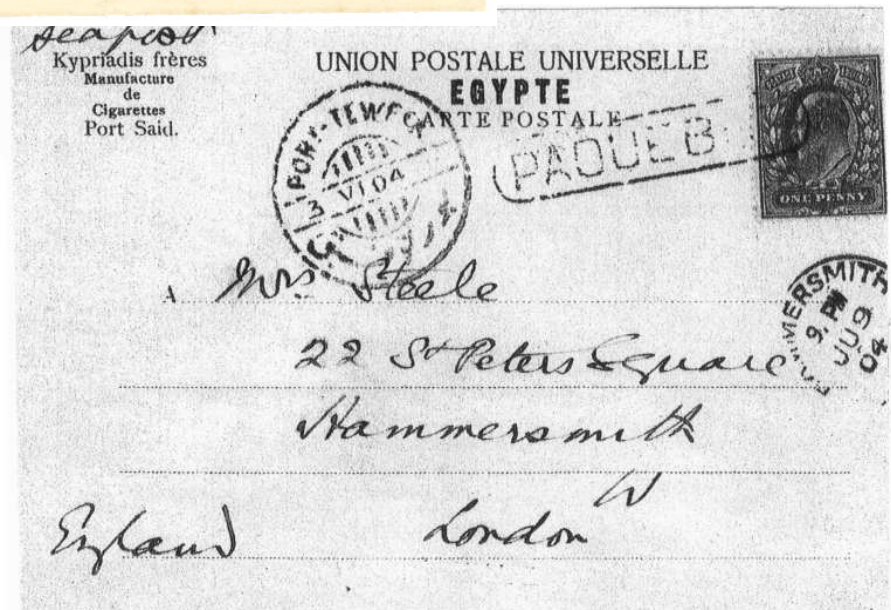 Seapost
Kypriadis frères
Manufacture
de
Cigarettes
Port Said.
UNION POSTALE UNIVERSELLE
EGYPTE
CARTE POSTALE
PORT-TEWFICK
3 VI 04
PAQUEB
ONE PENNY
HAMMERSMITH
9. PM
JU 9
04
A Mrs. Steele
22 St Peters Square
Hammersmith
London W
England